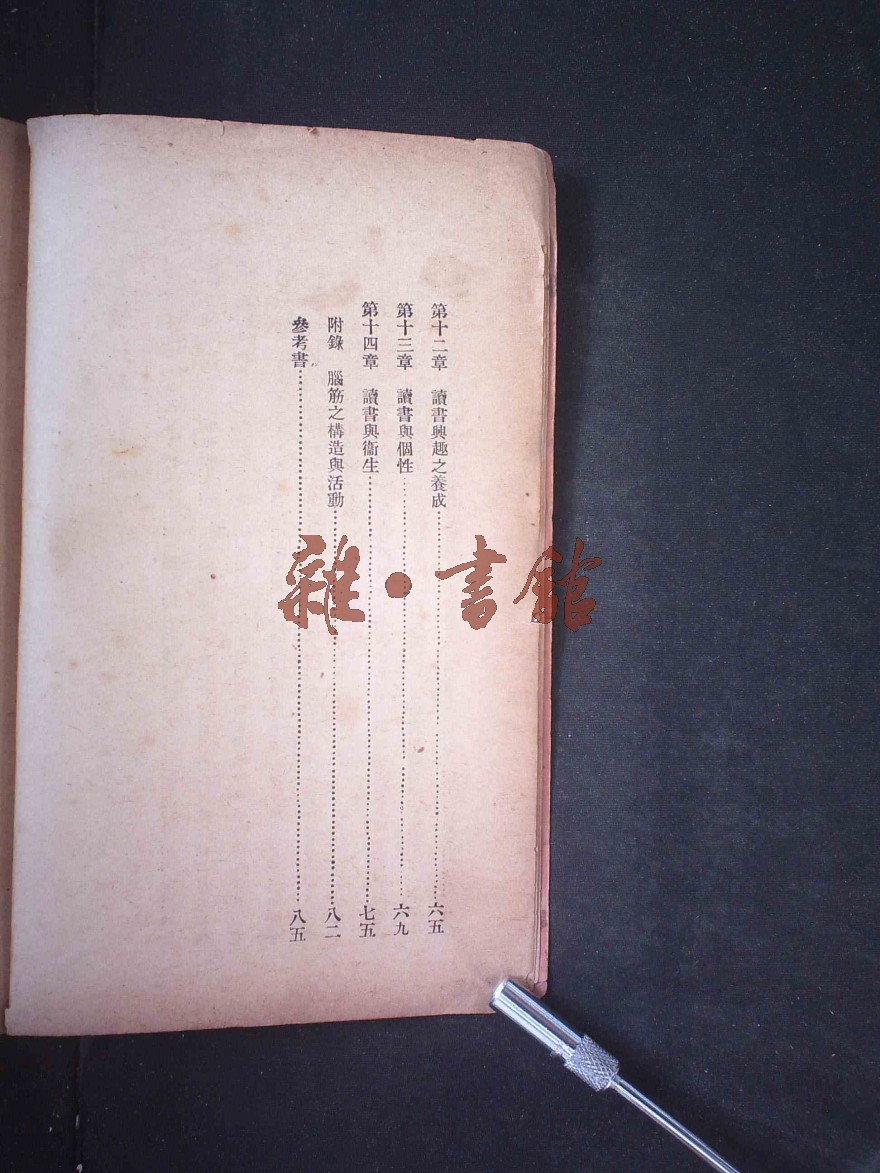 第十二章　讀書興趣之養成……六五
第十三章　讀書與個性……六九
第十四章　讀書與衞生……七五
附錄　腦筋之構造與活動……八二
參考書……八五
雜·書館